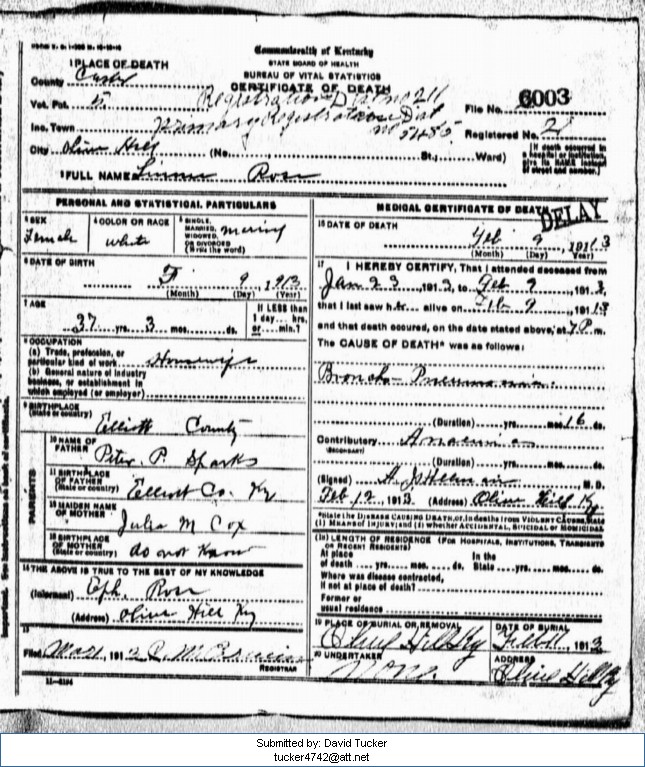 FORM V. S. 1
Commonwealth of Kentucky
STATE BOARD OF HEALTH
BUREAU OF VITAL STATISTICS
CERTIFICATE OF DEATH
1 PLACE OF DEATH
County
Vot. Pct. 5
Registration Dist no 211
Primary Registration Dist
no 5485
File No. 6003
Inc. Town
Registered No. 21
City Olive Hill (No. St.; Ward)
(If death occurred in a hospital or institution, give its NAME instead of street and number.)
2 FULL NAME Rose
PERSONAL AND STATISTICAL PARTICULARS
3 SEX
Female
4 COLOR OR RACE
white
5 SINGLE, MARRIED, WIDOWED, OR DIVORCED (Write the word)
6 DATE OF BIRTH
9 1913
(Month) (Day) (Year)
7 AGE
37 yrs. 3 mos. ds.
If LESS than 1 day... hrs. or... min.?
8 OCCUPATION
(a) Trade, profession, or particular kind of work Housewife
(b) General nature of industry business, or establishment in which employed (or employer)
9 BIRTHPLACE
(State or country) Elliott County
PARENTS
10 NAME OF FATHER Peter P. Sparks
11 BIRTHPLACE OF FATHER (State or country) Elliott Co. Ky
12 MAIDEN NAME OF MOTHER Julia M Cox
13 BIRTHPLACE OF MOTHER (State or country) do not know
14 THE ABOVE IS TRUE TO THE BEST OF MY KNOWLEDGE
(Informant) Eph. Rose
(Address) Olive Hill Ky
15
Filed Mar 1, 191
REGISTRAR
11-3194
MEDICAL CERTIFICATE OF DEATH
DELAY
16 DATE OF DEATH
Feb 9 1913
(Month) (Day) (Year)
17 I HEREBY CERTIFY, That I attended deceased from
Jan 23 1913, to Feb 9, 1913,
that I last saw her alive on Feb 9, 1913
and that death occured, on the date stated above, at 7 P. m.
The CAUSE OF DEATH* was as follows:
Broncho-Pneumonia.
(Duration) yrs. mos. 16 ds.
Contributory Anaemia
(SECONDARY)
(Duration) yrs. mos. ds.
(Signed) M. D.
Feb 12, 1913 (Address) Olive Hill Ky
*State the DISEASE CAUSING DEATH, or, in deaths from VIOLENT CAUSES, state
(1) MEANS OF INJURY; and (2) whether ACCIDENTAL, SUICIDAL or HOMICIDAL
18 LENGTH OF RESIDENCE (FOR HOSPITALS, INSTITUTIONS, TRANSIENTS OR RECENT RESIDENTS)
At place of death yrs. mos. ds. In the State yrs. mos. ds.
Where was disease contracted, if not at place of death?
Former or usual residence
19 PLACE OF BURIAL OR REMOVAL
Olive Hill Ky
DATE OF BURIAL
1913
20 UNDERTAKER
None
ADDRESS
Olive Hill Ky
Submitted by: David Tucker
tucker4742@att.net